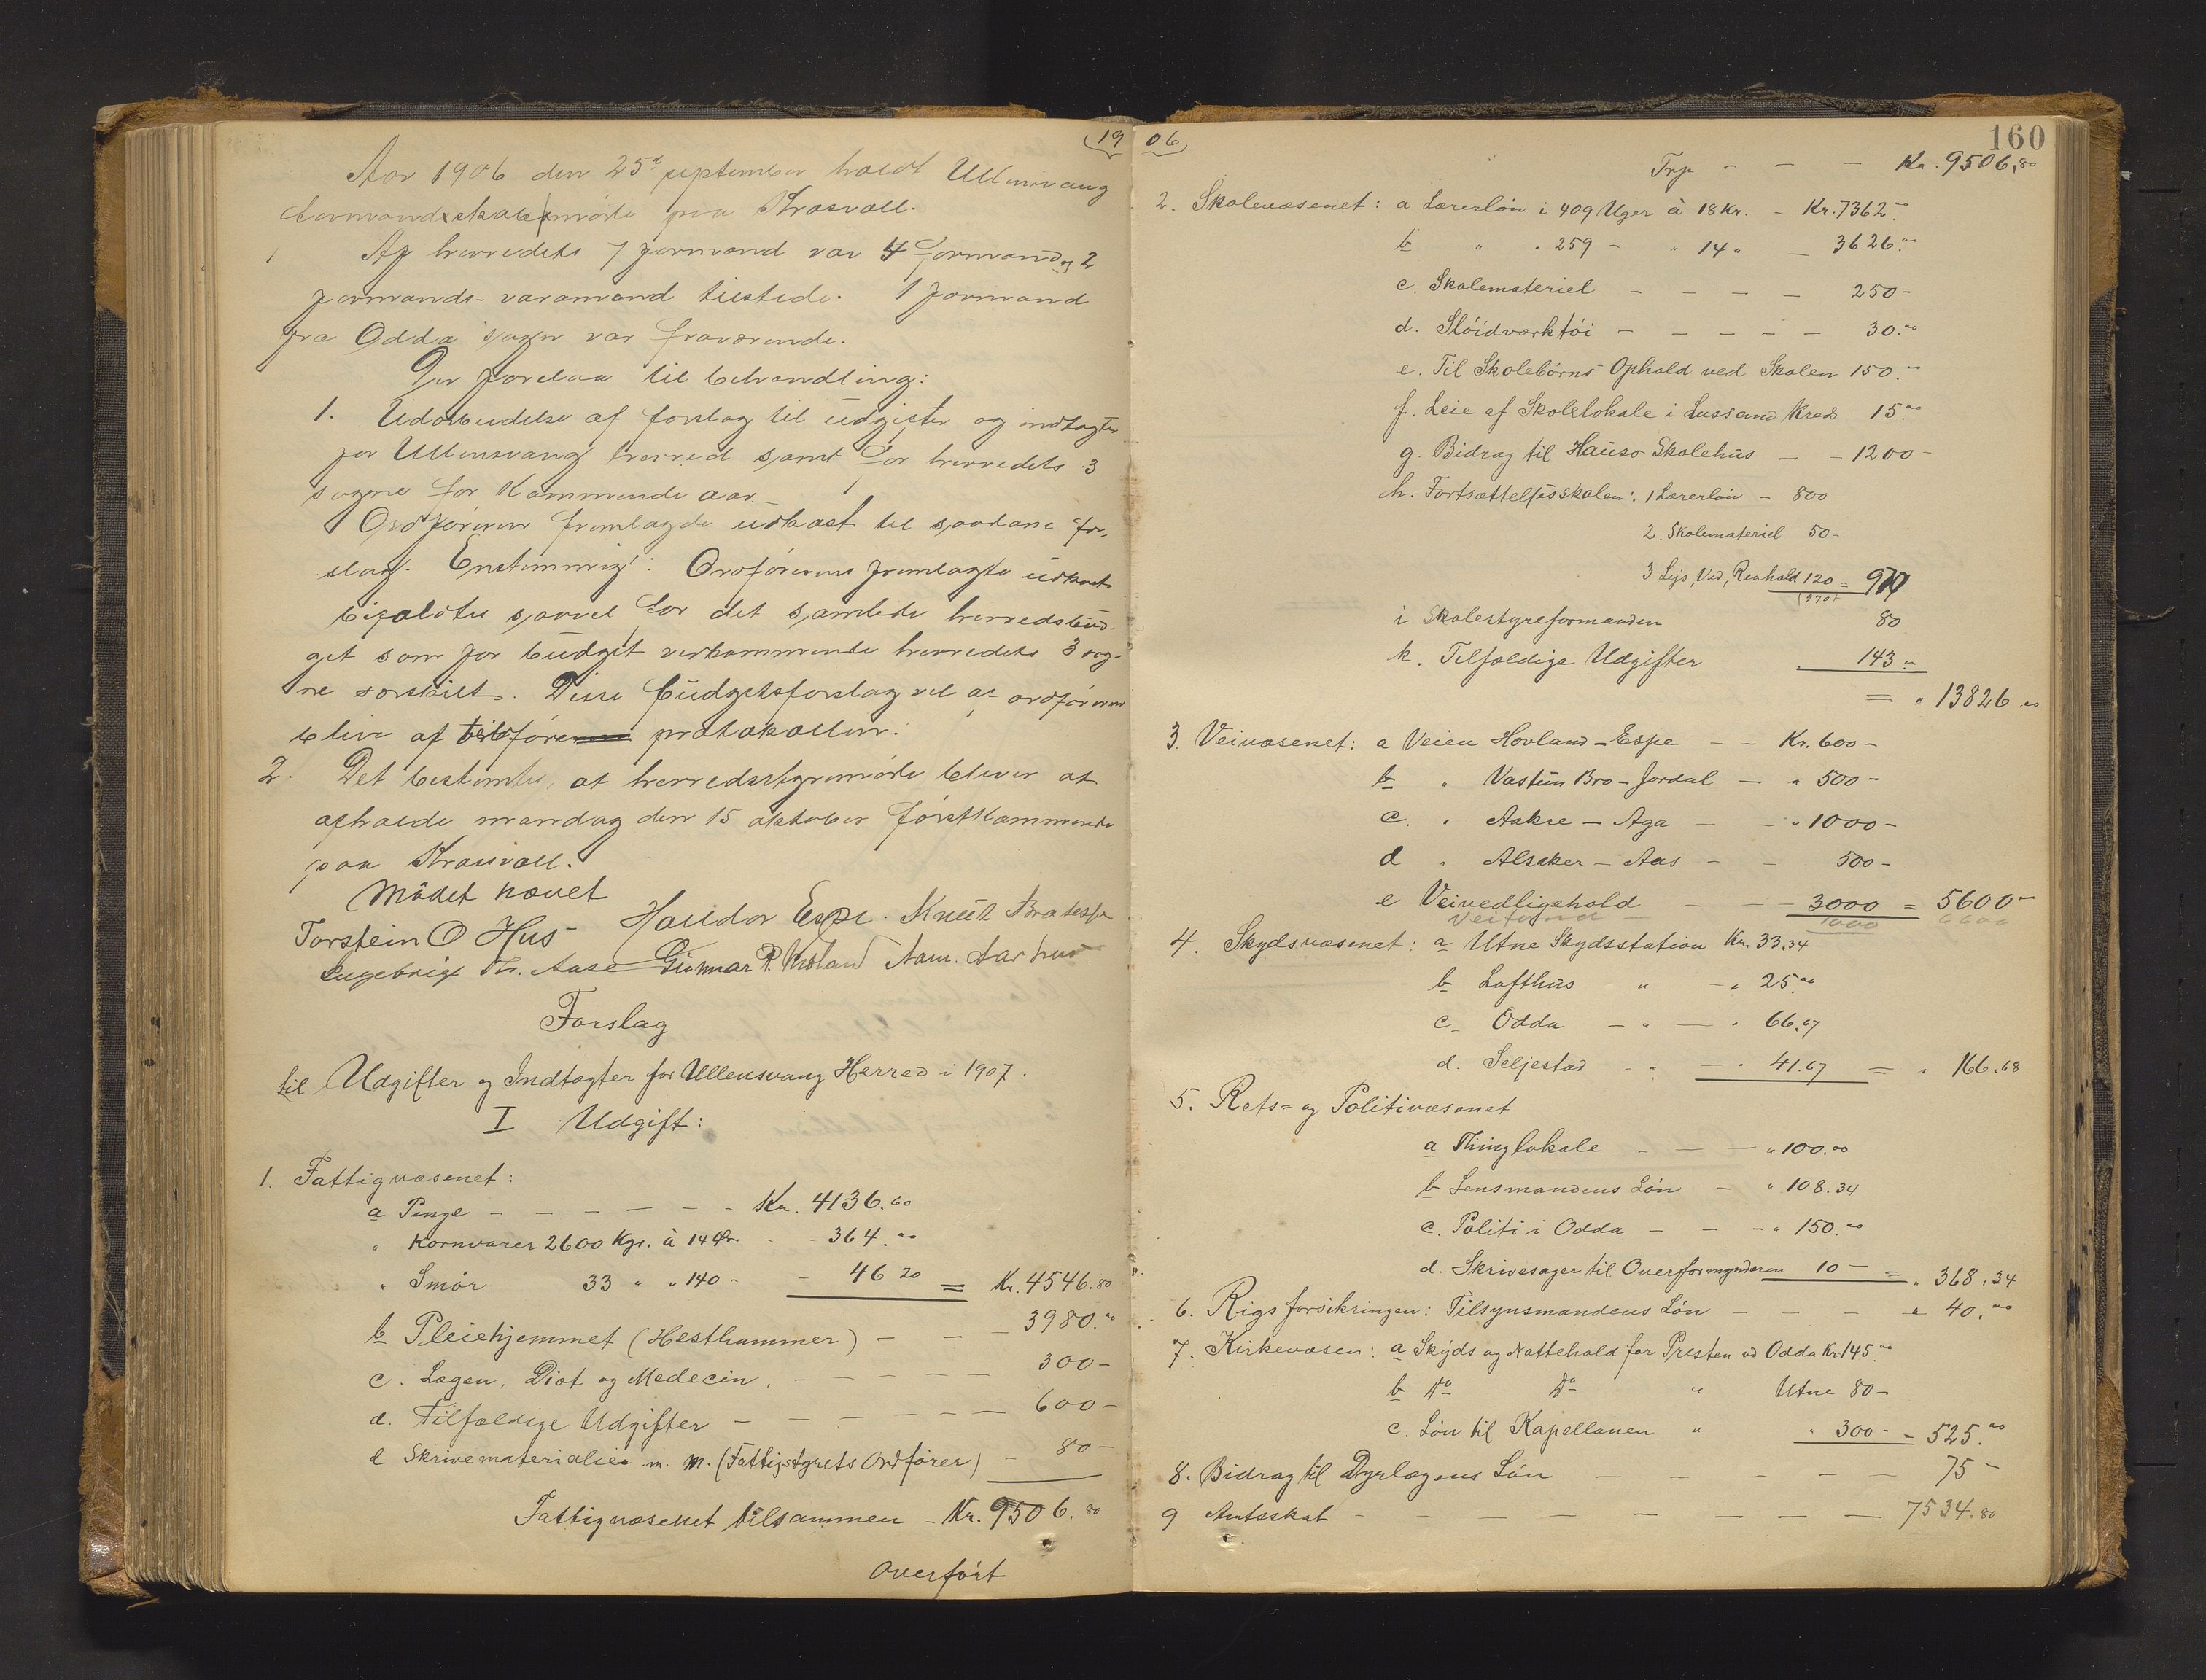 19
Aar 1906 den 25de september holdt Ullensvang
formandskabsmøde paa
Af herredets 7 formænd var 4 formænd og 2
formands-varamænd tilstede. 1 formand
fra Odda sogn var fraværende.
Der forelaa til behandling:
1. Udarbeidelse af forslag til udgifter og indtægter
for Ullensvang herred samt for herredets 3
sogne for kommende aar.
Ordføreren fremlagde udkast til saadane for-
slag. Enstemmig: Ordførerens fremlagte udkast
bifaldtes saavel for det samlede herredsbud-
get som for budget vedkommende herredets 3 sog-
ne særskilt. Disse budgetsforslag vil af ordføreren
blive at tilføre protokollen.
2. Det bestemtes, at herredsstyremøde bliver at
afholde mandag den 15 oktober førstkommende
paa
Mødet hævet
Torstein O Hus Haldor Espe. Knut
Engebrigt Th. Aase Gunnar P. Aam. Aarhus
Forslag
til Udgifter og Indtægter for Ullensvang Herred i 1907.
I Udgift:
1. Fattigvæsenet:
a Penge - - - - - - Kr. 4136.60
" Kornvarer 2600 Kgr. à 14 Øre - - 364.00
" Smør 33 " " 140 - - 46 20 = Kr. 4546.80
b Pleiehjemmet (Hesthammer) - - - 3980.00
c. Lægen, Diæt og Medecin. - - - - - 300 -
d. Tilfældige Udgifter - - - - - - 600 -
d Skrivematerialier m. m. (Fattigstyrets Ordfører) - 80 -
Fattigvæsenet tilsammen - Kr. 9506.80
Overført
06
160
Trp - - - Kr. 9506,80
2. Skolevæsenet: a Lærerløn i 409 Uger à 18 Kr. - Kr. 7362.00
b " " 259 - " 14 " - 3626.00
c. Skolemateriel - - - - 250 -
d. Sløidværktøi - - - - - 30.00
e. Til Skolebørns Ophold ved Skolen 150.-
f. Leie af Skolelokale i Lussand Kreds 15.00
g. Bidrag til Hauso Skolehus - - 1200 -
h. Fortsættelsesskolen: 1 Lærerløn - 800
2. Skolemateriel 50 -
3 Lys, Ved, Renhold 120 = 970
(970)
i Skolestyreformanden 80
k. Tilfældige Udgifter " 143 "
= " 13826.00
3. Veivæsenet: a Veien Hovland - Espe - - Kr. 600 -
b " Vastun Bro - Jordal - " 500 -
c. " Aakre - Aga - - " 1000 -
d " Alsaker - Aas - - 500 -
e Veivedligehold - - - 3000 = 5600 -
Veifond - 1000 6600
4. Skydsvæsenet: a Utne Skydsstation Kr. 33.34
b Lofthus " - " 25.00
c. Odda - " - " 66.67
d. Seljestad - " - " 41.67 = " 166.68
5. Rets- og Politivæsenet
a Thinglokale - - - " 100.00
b Lensmandens Løn - " 108.34
c. Politi i Odda - - - " 150.00
d. Skrivesager til Overformynderen 10 - = " 368.34
6. Rigsforsikringen: Tilsynsmandens Løn - - - " 40.00
7. Kirkevæsen: a Skyds og Nattehold for Presten ved Odda Kr. 145.00
b Do Do " Utne 80 -
c. Løn til Kapellanen " " 300 - = 525.00
8. Bidrag til Dyrlægens Løn - - - - - 75 -
9 Amtsskat - - - - - - - - 7534.80